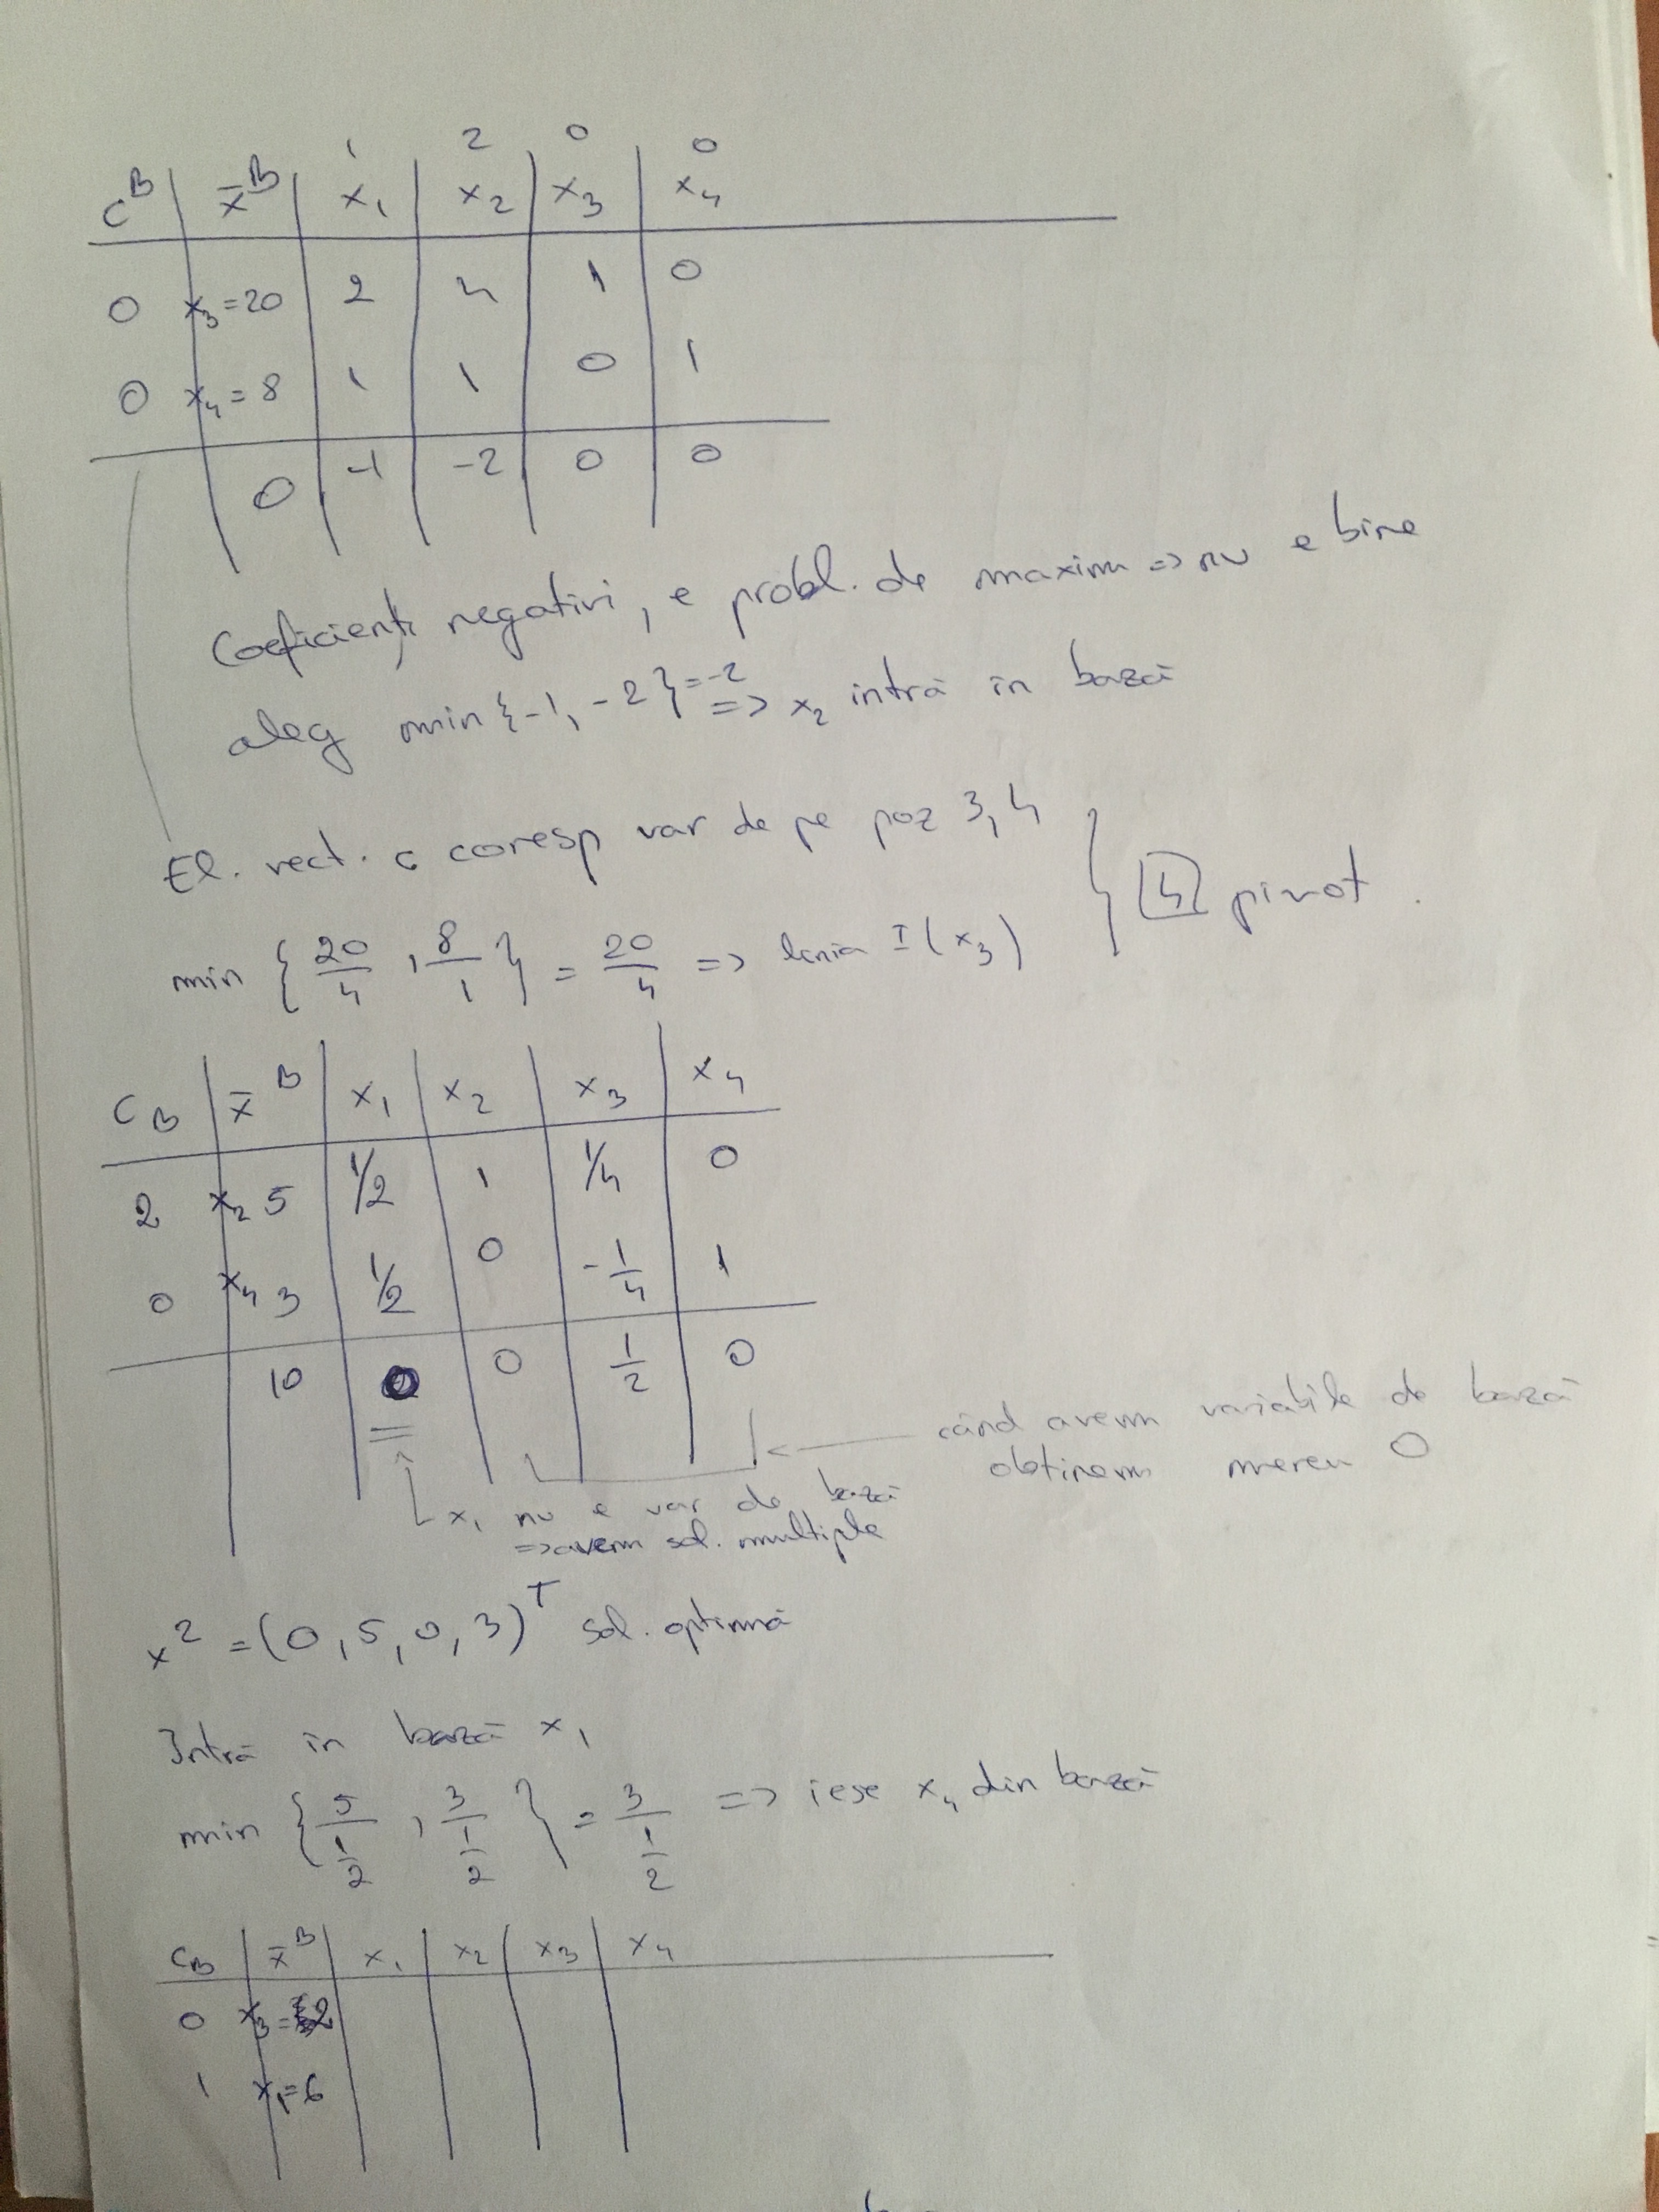 1 2 0 0
C^B | x̄^B | x₁ | x₂ | x₃ | x₄
0 | x₃=20 | 2 | 4 | 1 | 0
0 | x₄=8 | 1 | 1 | 0 | 1
0 | -1 | -2 | 0 | 0
Coeficienți negativi, e probl. de maxim => nu e bine
aleg min {-1, -2} = -2 => x₂ intră în bază
El. vect. c coresp var de pe poz 3, 4
min { 20/4 , 8/1 } = 20/4 => linia I (x₃) } [4] pivot.
C_B | x̄^B | x₁ | x₂ | x₃ | x₄
2 | x₂ 5 | 1/2 | 1 | 1/4 | 0
0 | x₄ 3 | 1/2 | 0 | -1/4 | 1
10 | 0 | 0 | 1/2 | 0
când avem variabile de bază
obținem mereu 0
x₁ nu e var de bază
=> avem sol. multiple
x² = (0, 5, 0, 3)^T sol. optimă
Intră în bază x₁
min { 5/(1/2) , 3/(1/2) } = 3/(1/2) => iese x₄ din bază
C_B | x̄^B | x₁ | x₂ | x₃ | x₄
0 | x₃=2
1 | x₁=6